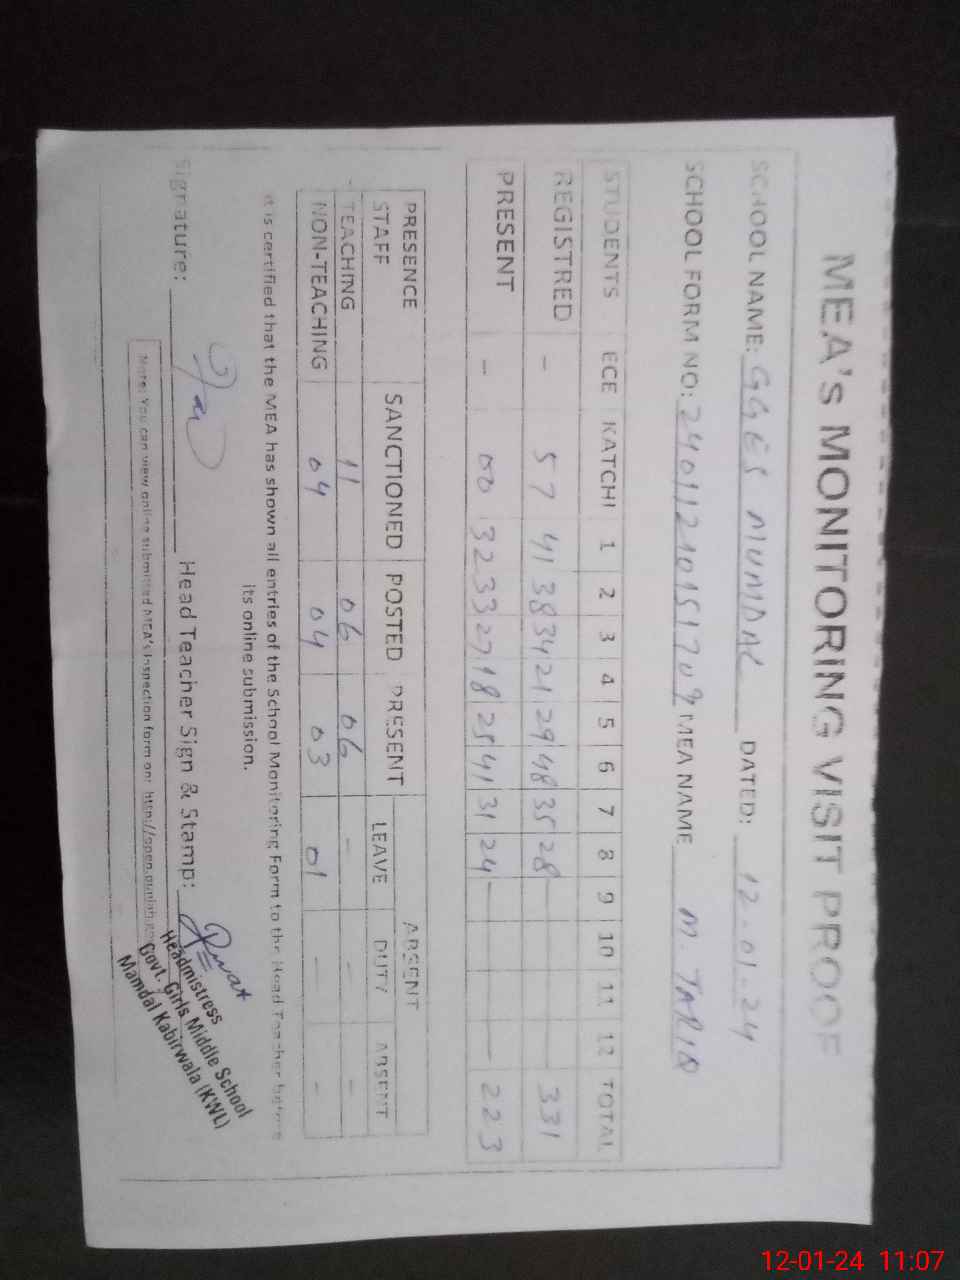 MEA's MONITORING VISIT PROOF
SCHOOL NAME: GGES MUMDAL DATED: 12-01-24
SCHOOL FORM NO: MEA NAME M. TARIQ
STUDENTS ECE KATCHI 1 2 3 4 5 6 7 8 9 10 11 12 TOTAL
REGISTRED - 57 41 38 34 21 29 48 35 28 331
PRESENT - 00 32 33 27 18 25 41 31 24 223
PRESENCE STAFF SANCTIONED POSTED PRESENT ABSENT
LEAVE DUTY ABSENT
TEACHING 11 06 06 - - -
NON-TEACHING 04 04 03 01 - -
It is certified that the MEA has shown all entries of the School Monitoring Form to the Head Teacher before
its online submission.
Signature: Head Teacher Sign & Stamp:
Headmistress
Govt. Girls Middle School
Mamdal Kabirwala (KWL)
Note: You can view online submitted MEA's Inspection form on: http://open.punjab
12-01-24 11:07